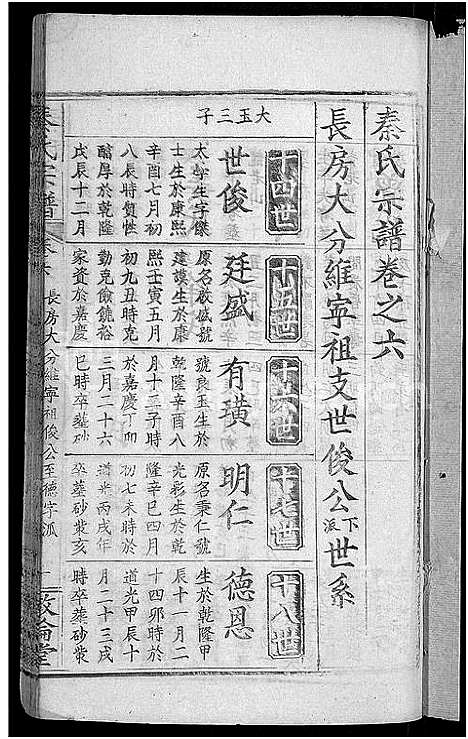 秦氏宗譜卷之六
長房大分維寧祖支世俊公下派世系
十四世
大玉三子
世俊
太學生字傑
士生於康熙
辛酉七月初
八辰時賀性
醕厚於乾隆
戊辰十二月
十五世
廷盛
原名啟盛號
建謨生於康
熙壬寅五月
初九丑時克
勤克儉饒裕
家資於嘉慶
十六世
有璜
號良玉生於
乾隆辛酉八
月十三子時
於嘉慶丁卯
三月二十六
巳時卒塟砂
十七世
明仁
原名秉仁號
光彩生於乾
隆辛巳四月
初七未時於
道光丙戌年
卒塟砂漿亥
十八世
德恩
生於乾隆甲
辰十一月二
十四卯時於
道光甲辰十
月二十三戌
時卒葬砂漿
秦氏宗譜
卷六
長房大分維寧祖俊公至德字派
一
敦倫堂